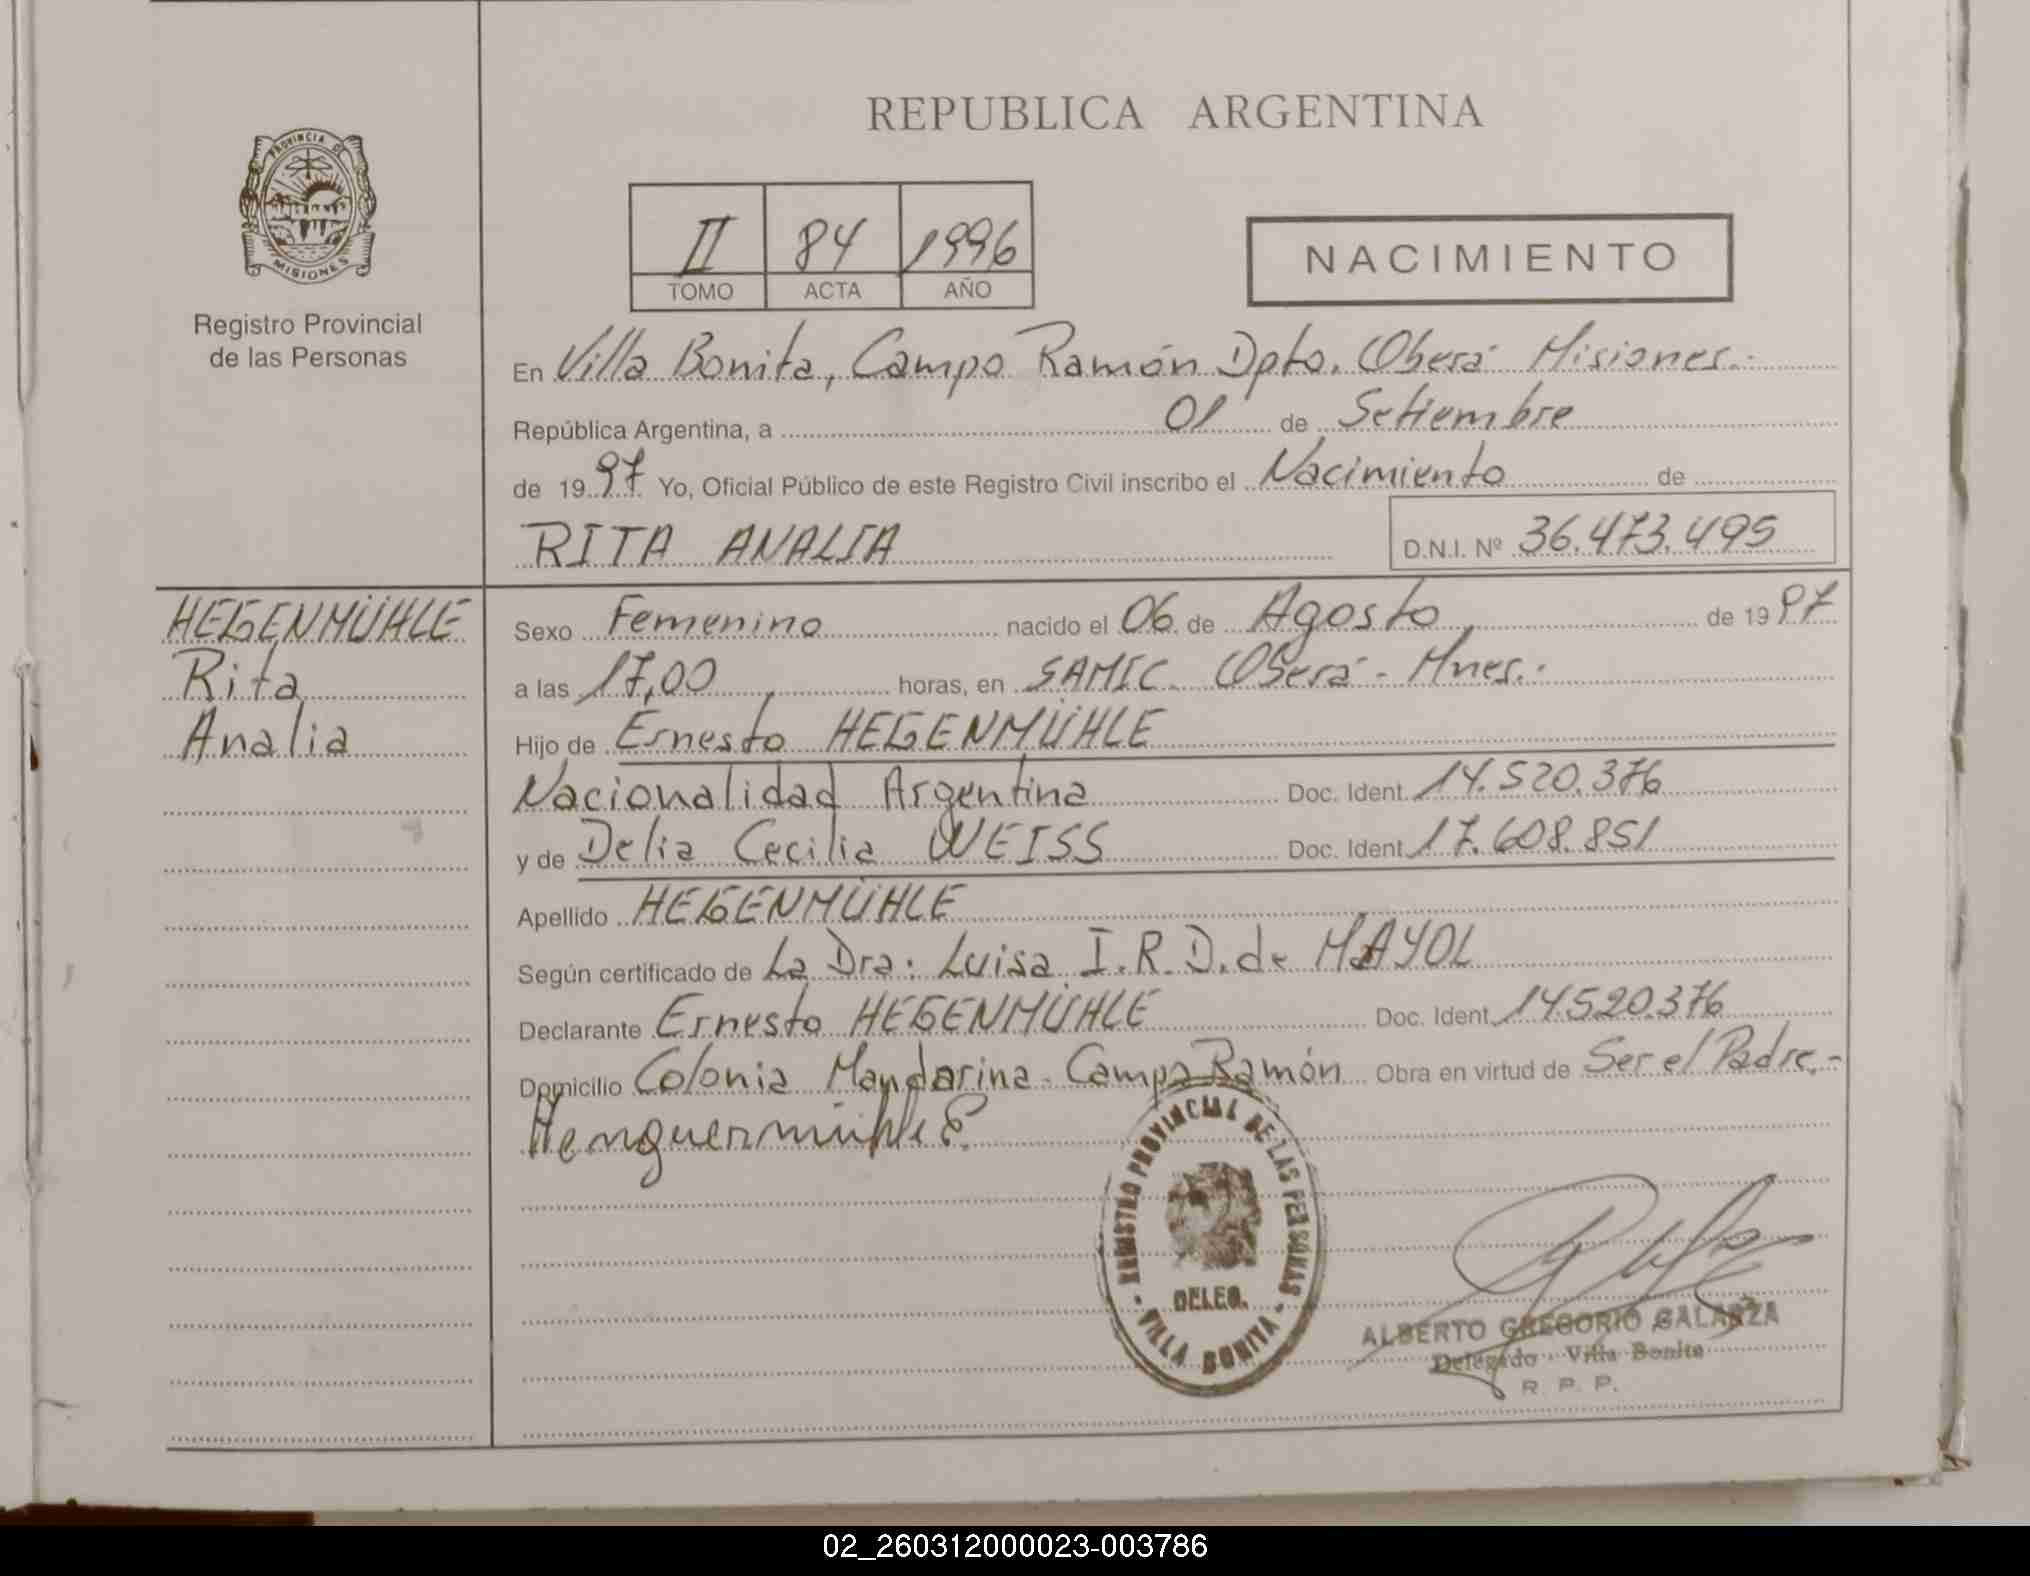 REPUBLICA ARGENTINA
PROVINCIA DE
MISIONES
Registro Provincial
de las Personas
II 84 1996
TOMO ACTA AÑO
NACIMIENTO
En Villa Bonita, Campo Ramón Dpto. Oberá Misiones.-
República Argentina, a 01 de Setiembre
de 1997 Yo, Oficial Público de este Registro Civil inscribo el Nacimiento de
RITA ANALIA D.N.I. Nº 36.473.495
HEGENMÜHLE
Rita
Analia
Sexo Femenino nacido el 06 de Agosto de 1997
a las 17,00 horas, en SAMIC. Oberá - Mnes.-
Hijo de Ernesto HEGENMÜHLE
Nacionalidad Argentina Doc. Ident. 14.520.376
y de Delia Cecilia WEISS Doc. Ident. 17.608.851
Apellido HEGENMÜHLE
Según certificado de La Dra: Luisa I.R.D. de MAYOL
Declarante Ernesto HEGENMÜHLE Doc. Ident. 14.520.376
Domicilio Colonia Mandarina - Campo Ramón Obra en virtud de Ser el Padre.-
Henguermühle E.
REGISTRO PROVINCIAL DE LAS PERSONAS
DELEG.
VILLA BONITA
ALBERTO GREGORIO GALARZA
Delegado - Villa Bonita
R. P. P.
02_260312000023-003786